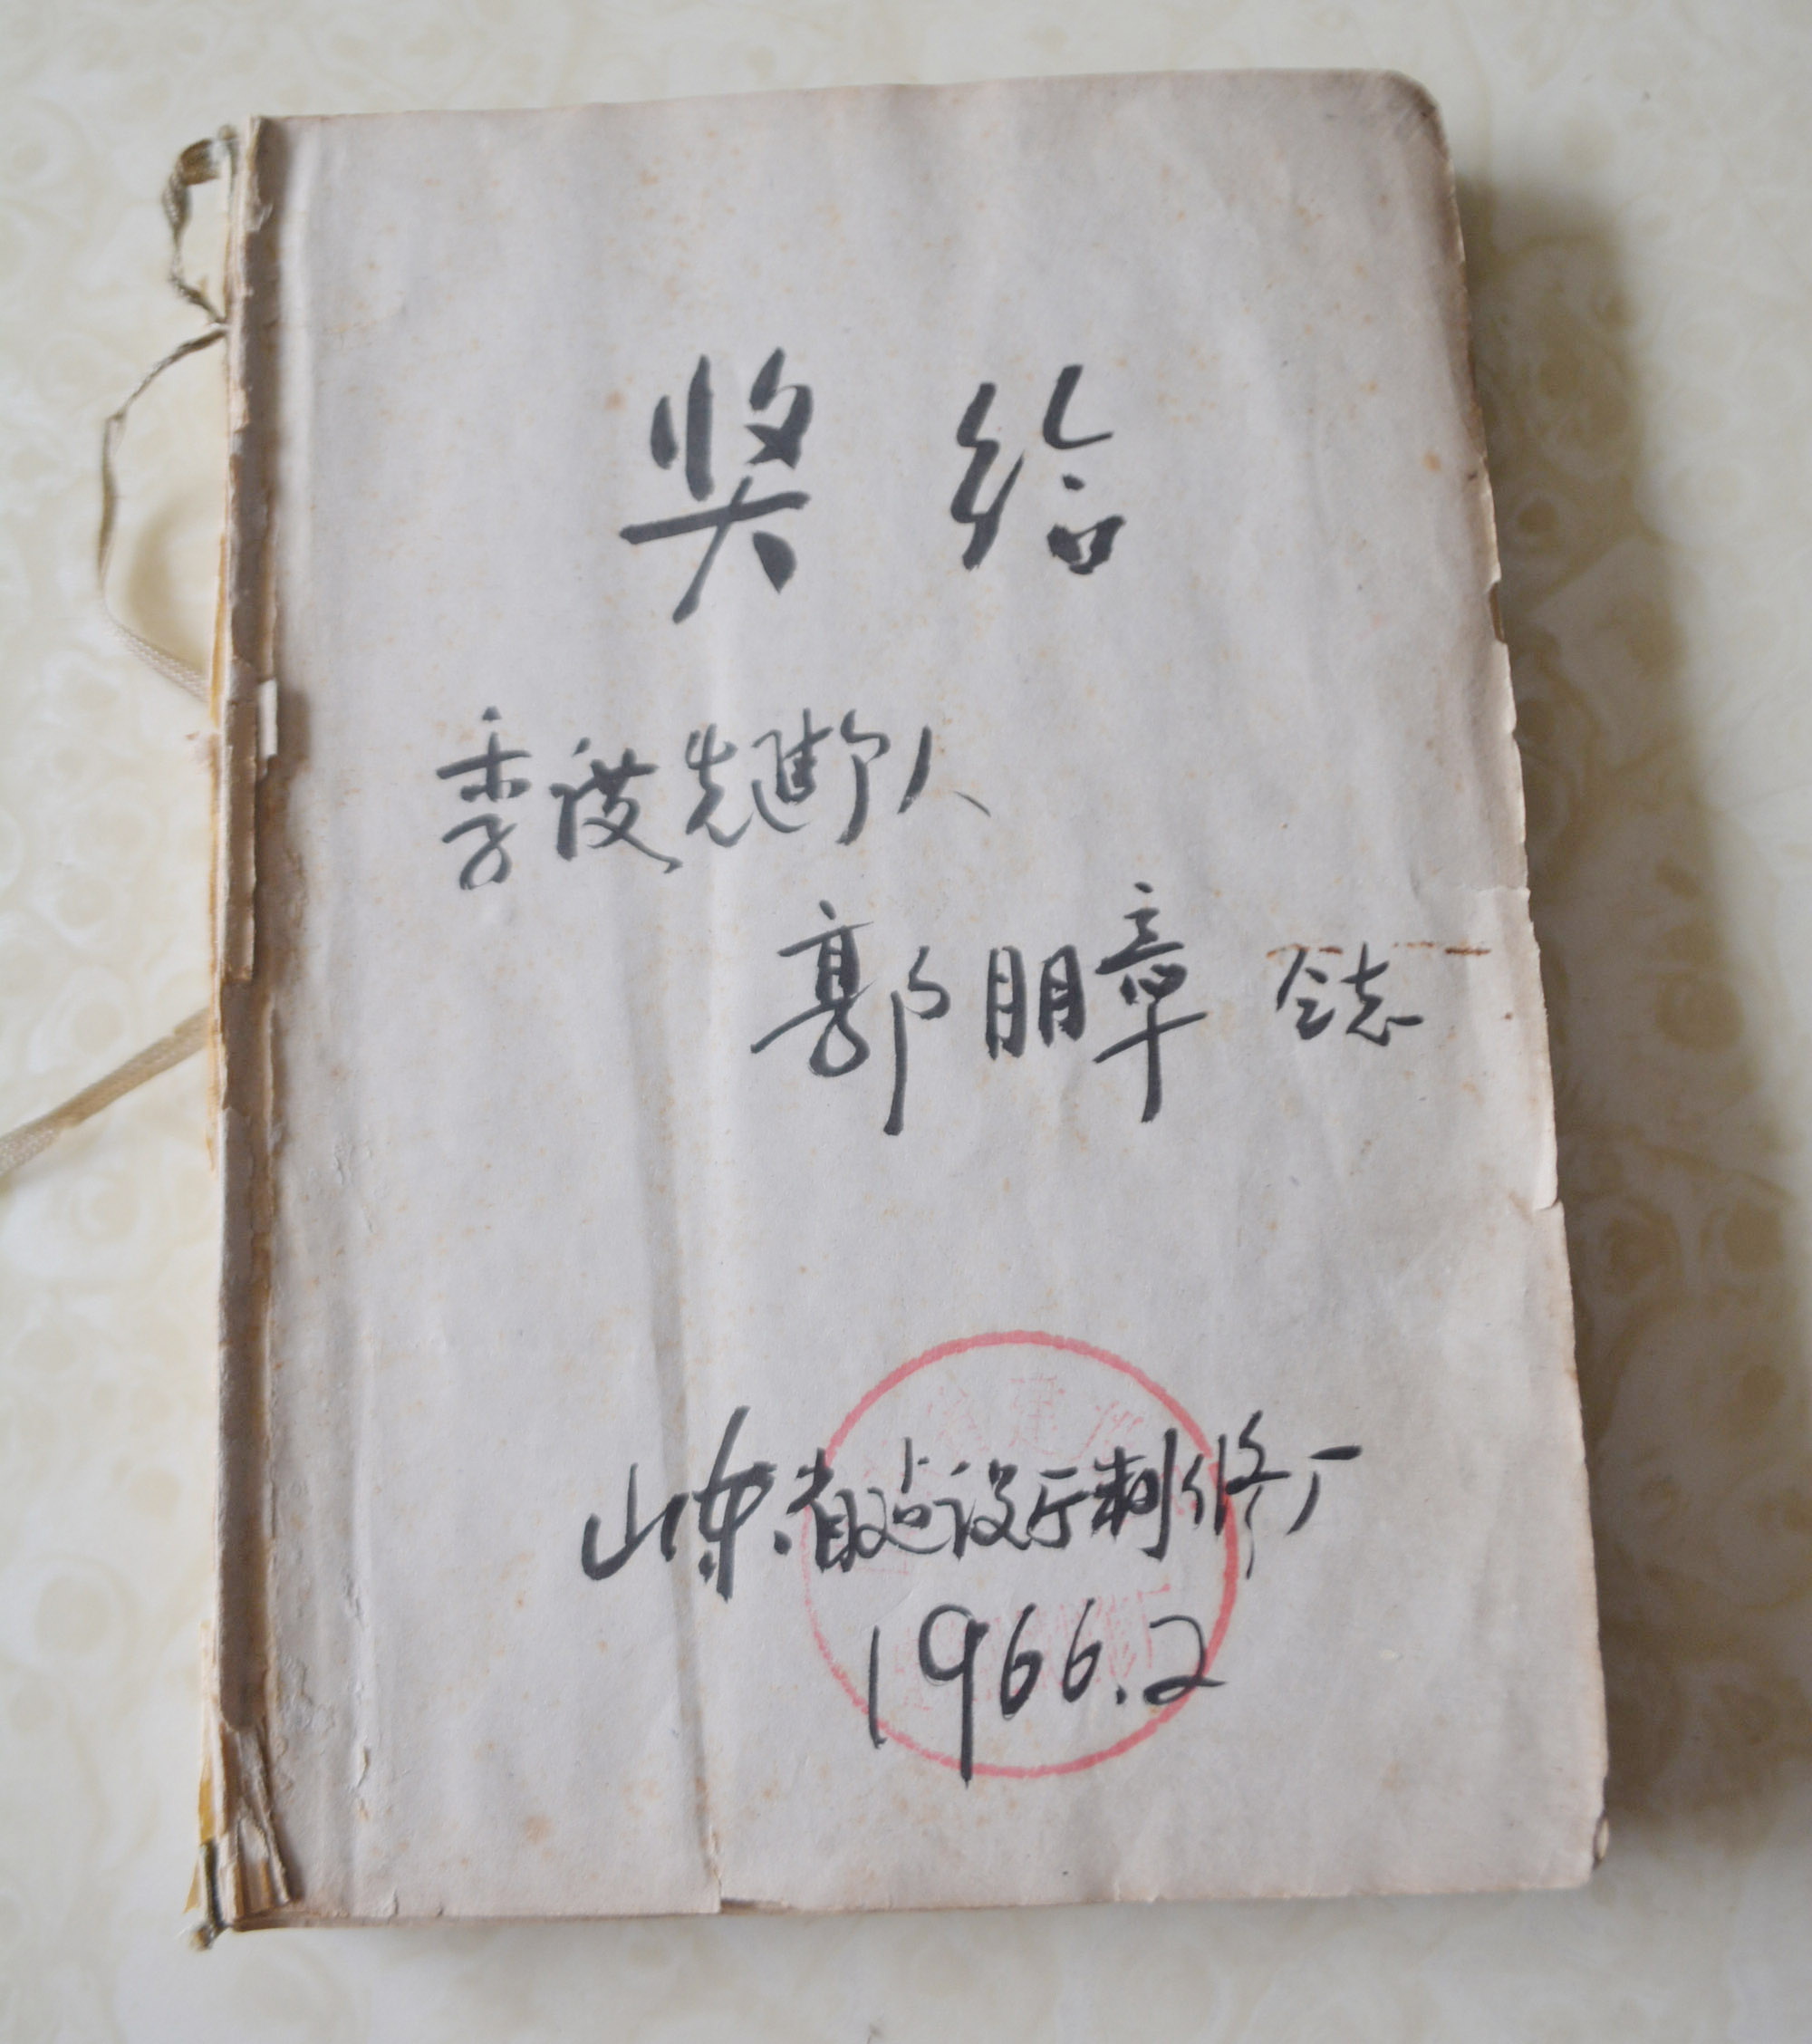 奖给
季度先進个人
郭明章 仝志
山东省建设厅制修厂
1966.2